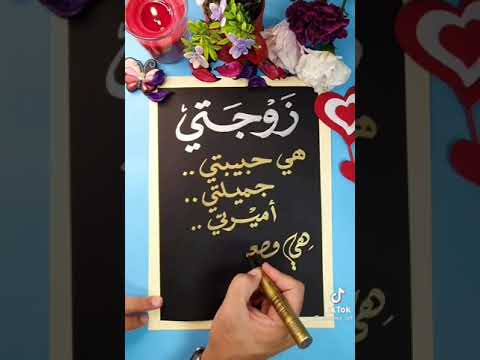 زَوْجَتي
هي حبيبتي ..
جميلتي ..
أميرتي ..
هِيَ
TikTok